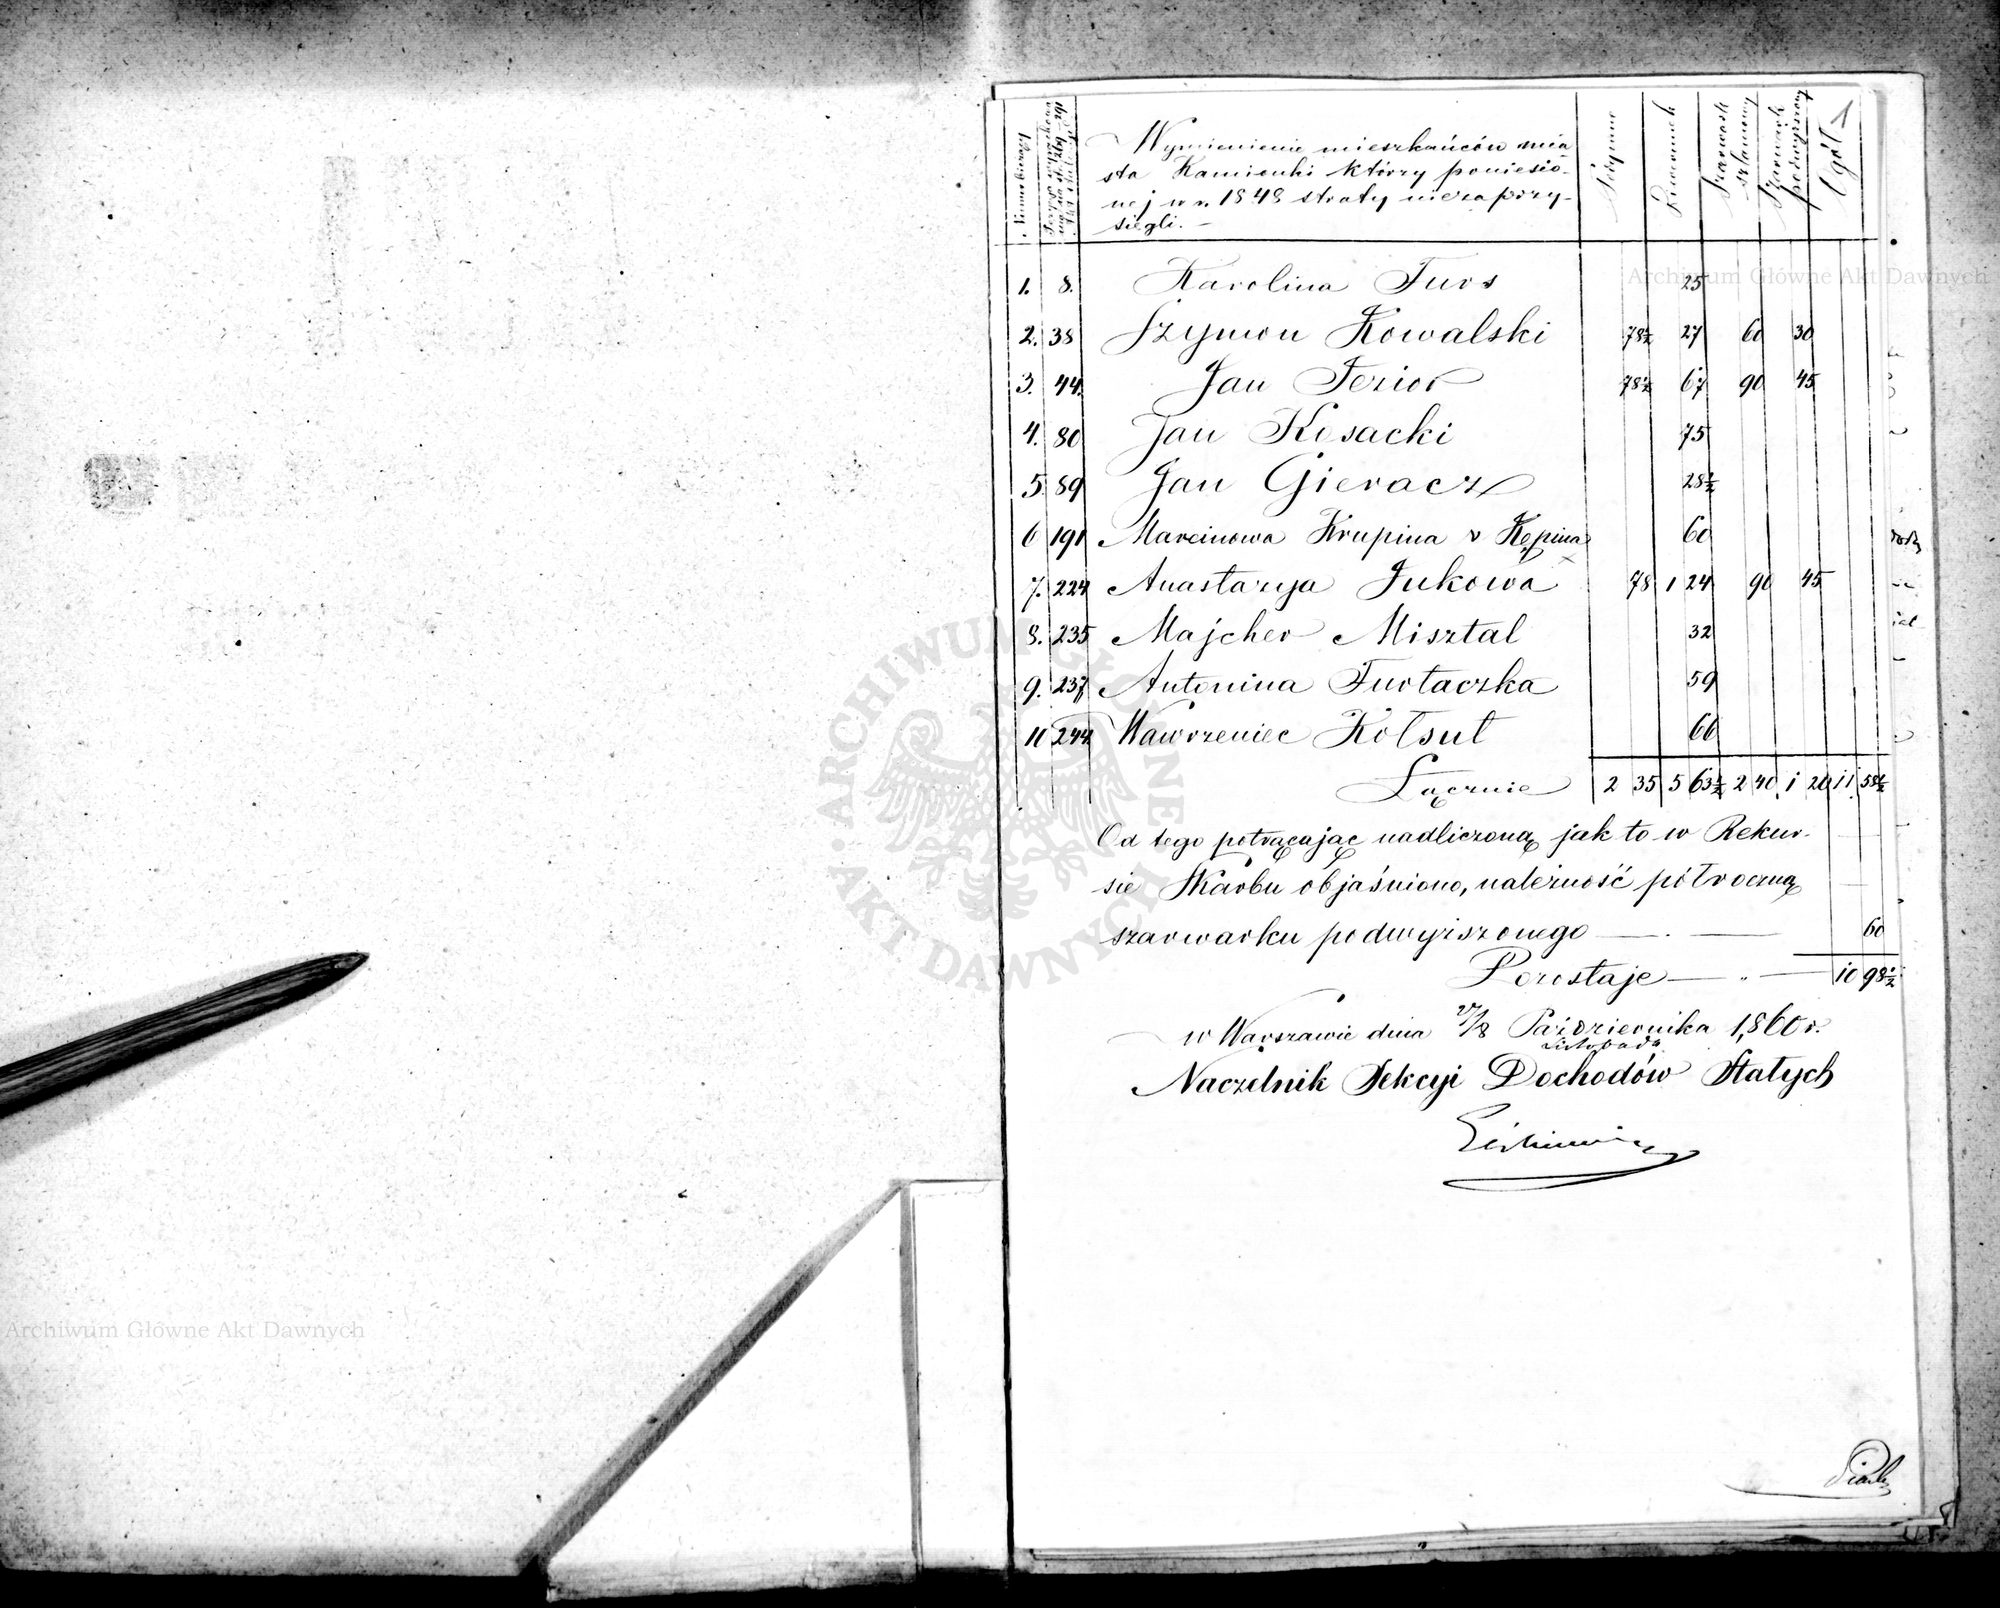 Numer bieżący
Podymne
Kwarunek
Szarwark
szlamowy
Szarwark
podwyższony
Ogół
1
Wymienienie mieszkańców mia
sta Kamionki którzy poniesio-
nej w r. 1848 straty nie zaprzy-
siegli.—
1. 8. Karolina Furs 25
2. 38 Szymon Kowalski 78½ 27 60 30
3. 44. Jan Jezior 78½ 67 90 45
4. 80 Jan Kosacki 75
5 89 Jan Gieracz 28½
6 191 Marcinowa Krupina v Kępina 60
7. 224 Anastazya Jukowa 78 1 24 90 45
8. 235 Majcher Misztal 32
9. 237 Antonina Furtaczka 59
10 244 Wawrzeniec Kołsut 66
Łącznie 2 35 5 63½ 2 40 1 20 11 58½
Od tego potrącając nadliczoną jak to w Rekur-
sie Skarbu objaśniono, należność półroczną
szarwarku podwyższonego — . — 60
Pozostaje — . — 10 98½
w Warszawie dnia 27/8 Października 1,860 r.
Listopada
Naczelnik Sekcyi Dochodów Stałych
Archiwum Główne Akt Dawnych
Archiwum Główne Akt Dawnych
ARCHIWUM GŁÓWNE AKT DAWNYCH